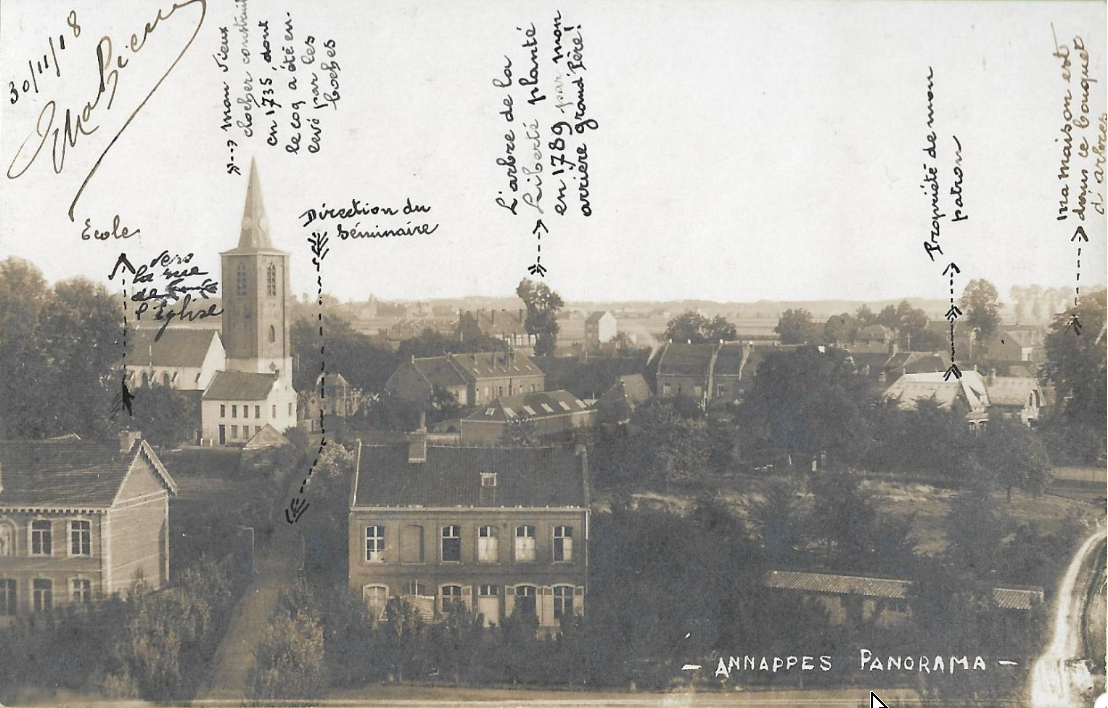 30/11/18
mon vieux
clocher construit
en 1735, dont
le coq a été en-
levé par les
boches
L'arbre de la
Liberté planté
en 1789 par mon
arrière grand'père!
Propriété de mon
patron
ma maison est
dans ce bouquet
d'arbres
École
vers
la rue
de
l'Église
Direction du
Séminaire
- ANNAPPES PANORAMA -